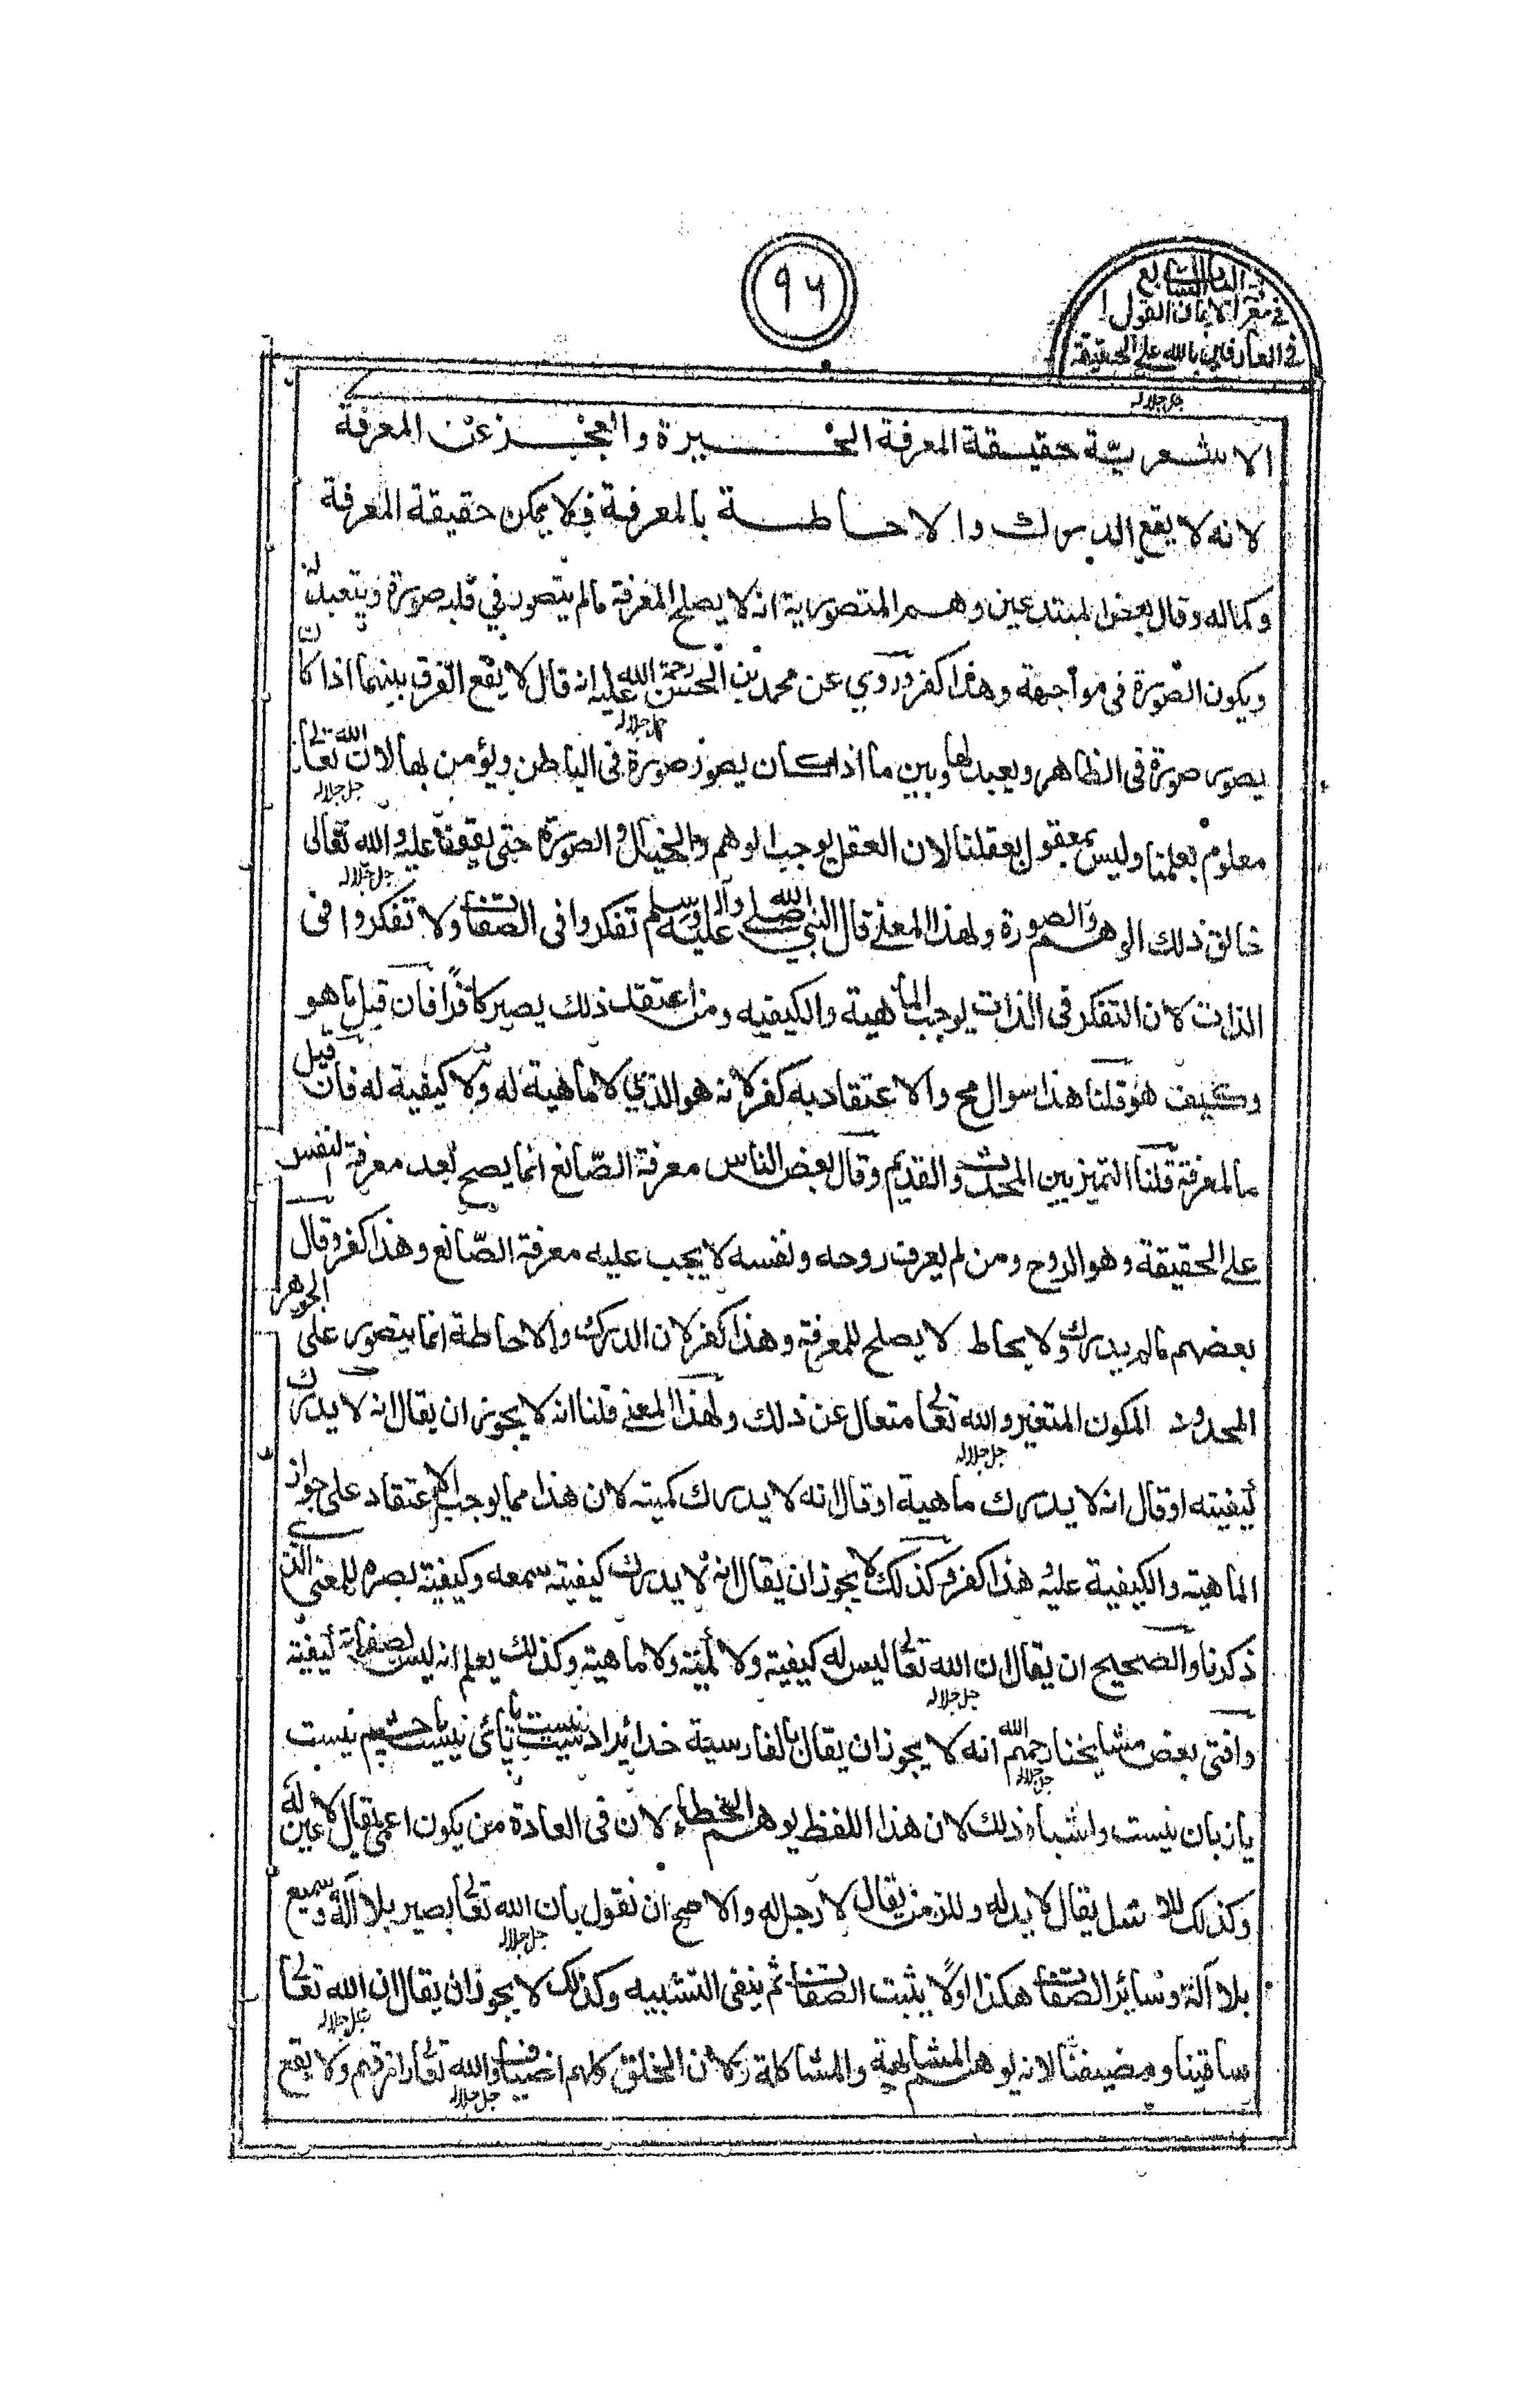 ٩٦
الباب السابع
في شرائط الايمان القول
في العارفين بالله على الحقيقة
جل جلاله
الاشعريّة حقيقة المعرفة الحيرة والعجز عن المعرفة
لانه لا يقع الدرك والاحاطة بالمعرفة فلا يمكن حقيقة المعرفة
وكماله وقال بعض المبتدعين وهم المتصورية انه لا يصلح المعرفة مالم يتصور في قلبه صورة ويتعبد له
ويكون الصورة في مواجهة وهذا كفر وروي عن محمد بن الحسن رحمة الله عليه انه قال لا يقع الفرق بينهما اذا كان
يصور صورة في الظاهر ويعبد لها وبين ما اذا كان يصور صورة في الباطن ويؤمن بها لان الله تعالى
جل جلاله
معلوم بعلمنا وليس بمعقول بعقلنا لان العقل يوجب الوهم والخيال والصورة حتى يقف عليه والله تعالى
جل جلاله
خالق ذلك الوهم والصورة ولهذا المعنى قال النبي صلى الله عليه وآله وسلم تفكروا في الصفات ولا تفكروا في
الذات لان التفكر في الذات يوجب الماهية والكيفيه ومن اعتقد ذلك يصير كافرًا فان قيل ما هو
وكيف هو قلنا هذا سوال مح والاعتقاد به كفر لانه هو الذي لا ماهية له ولا كيفية له فان قيل
ما المعرفة قلنا التميز بين المحدث والقديم وقال بعض الناس معرفة الصّانع انما يصح بعد معرفة النفس
على الحقيقة وهو الروح ومن لم يعرف روحه ونفسه لا يجب عليه معرفة الصّانع وهذا كفر وقال
بعضهم مالم يدرك ولا يحاط لا يصلح للمعرفة وهذا كفر لان الدرك والاحاطة انما يتصور على الجوهر
المحدود المكون المتغير والله تعالى متعال عن ذلك ولهذا المعنى قلنا انه لا يجوز ان يقال انه لا يدرك
جل جلاله
كيفيته او قال انه لا يدرك ماهية او قال انه لا يدرك كميته لان هذا مما يوجب الاعتقاد على جواز
الماهية والكيفية عليه هذا كفر وكذلك لا يجوز ان يقال انه لا يدرك كيفيته سمعه وكيفية بصره للمعنى الذي
ذكرنا والصحيح ان يقال ان الله تعالى ليس له كيفية ولا كمية ولا ماهية وكذلك يعلم انه ليس لصفاته كيفية
جل جلاله
وافتى بعض مشايخنا رحمهم الله انه لا يجوز ان يقال بالفارسية خدائيرا دست نيست يا پائى نيست يا چشم نيست
جل جلاله
يا زبان نيست واشباه ذلك لان هذا اللفظ يوهم الخطاء لان في العادة من يكون اعمى يقال لا عين له
وكذلك للاشل يقال لا يد له وللزمن يقال لا رجل له والاصح ان نقول بان الله تعالى بصير بلا آلة وسميع
جل جلاله
بلا آلة وسائر الصفات هكذا اولًا يثبت الصفات ثم ينفى التشبيه وكذلك لا يجوز ان يقال ان الله تعالى
جل جلاله
ساقينا ومضيفنا لانه يوهم المشابهة والمشاكلة ولان الخلق كلهم اضياف والله تعالى رازقهم ولا يقع
جل جلاله